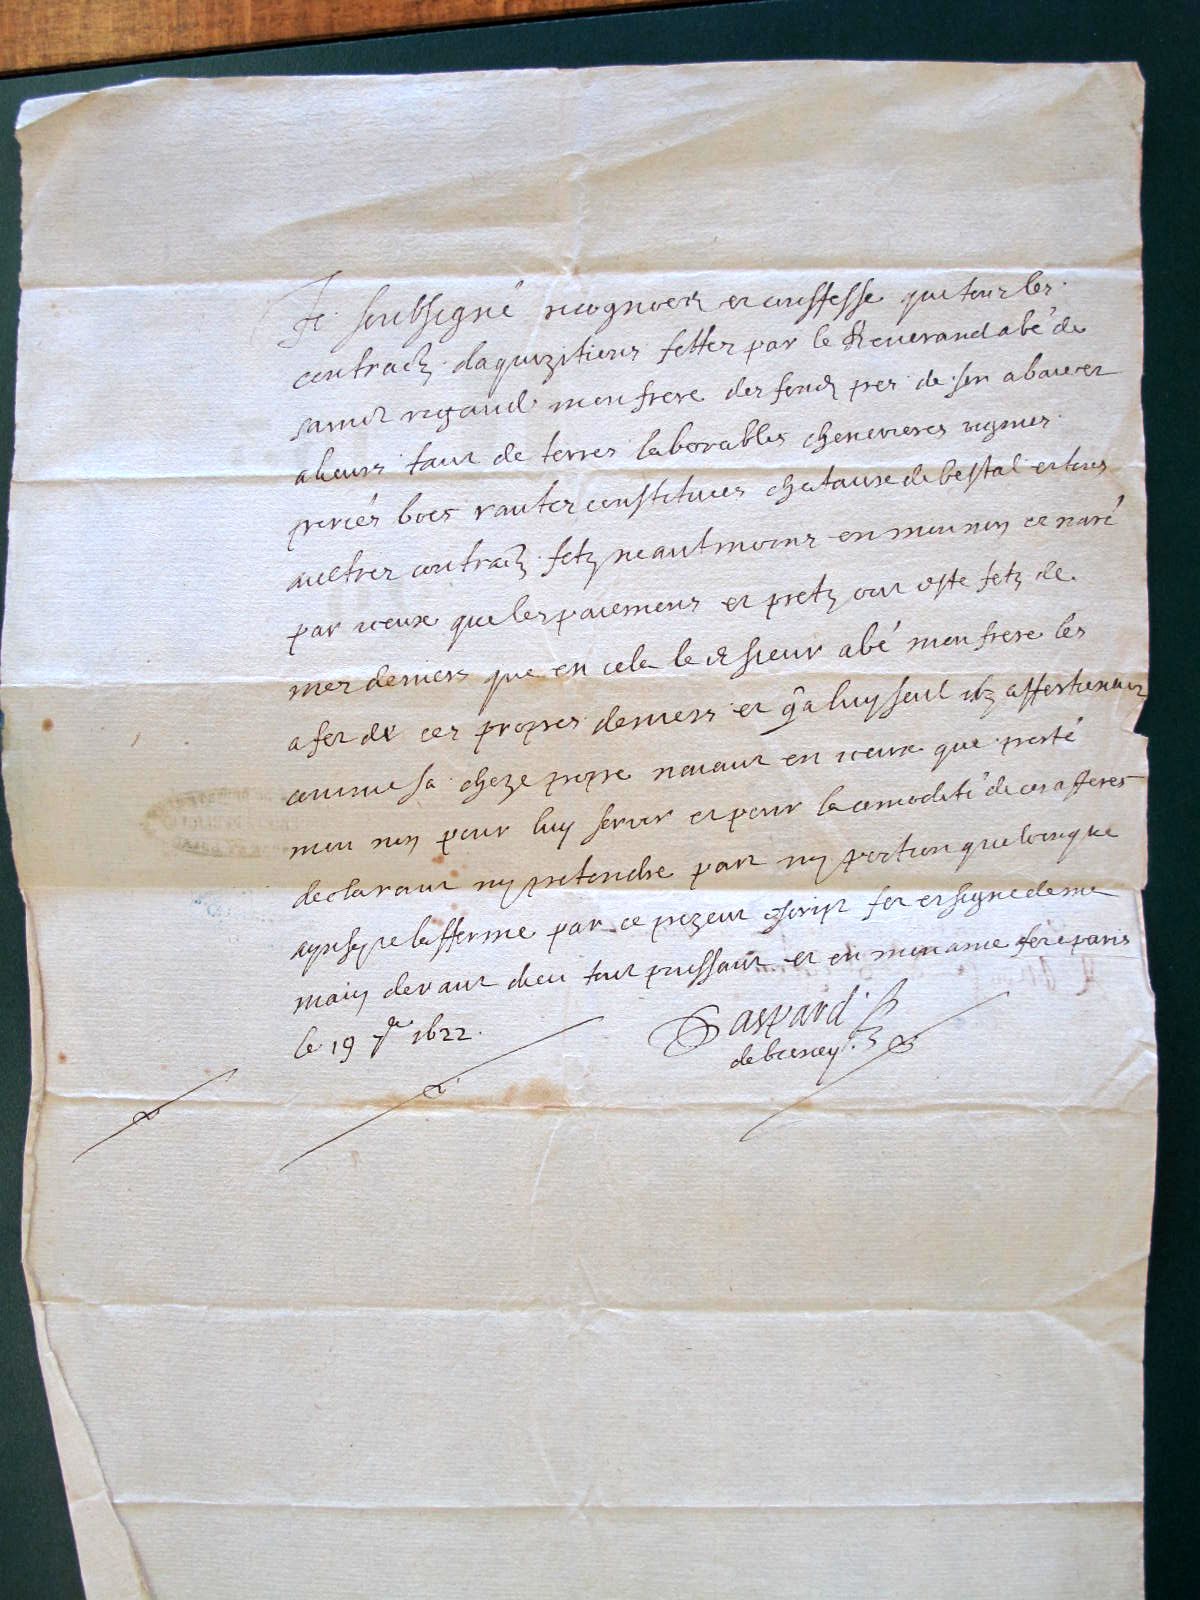 Je soubsigné recognoetz et confesse que tous les
contractz daquizitions fettes par le Reverand abé de
saint rigaud mon frere des fondz pres de son abaie et
alieurs tant de terres laborables chenevieres vignes
preriés bois rantes constitues chataux de bestal et tous
aultres contractz fetz neantmoins en mon nom ce naré
par iceux que les paiemens et pretz ont esté fetz de
mes deniers que en cela le dt sieur abé mon frere les
a fet de ces propres deniers et qu'a luy seul ilz affertienent
comme sa choze propre n'aiant en iceux que presté
mon nom pour luy servir et pour la comodité de ces afferes
declarant ny pretendre part ny portion quelconque
aynsy je lafferme par ce prezent escript fet et signe de ma
main devant dieu tout puissant et en mon ame fet a paris
le 19 7bre 1622.
Gaspard